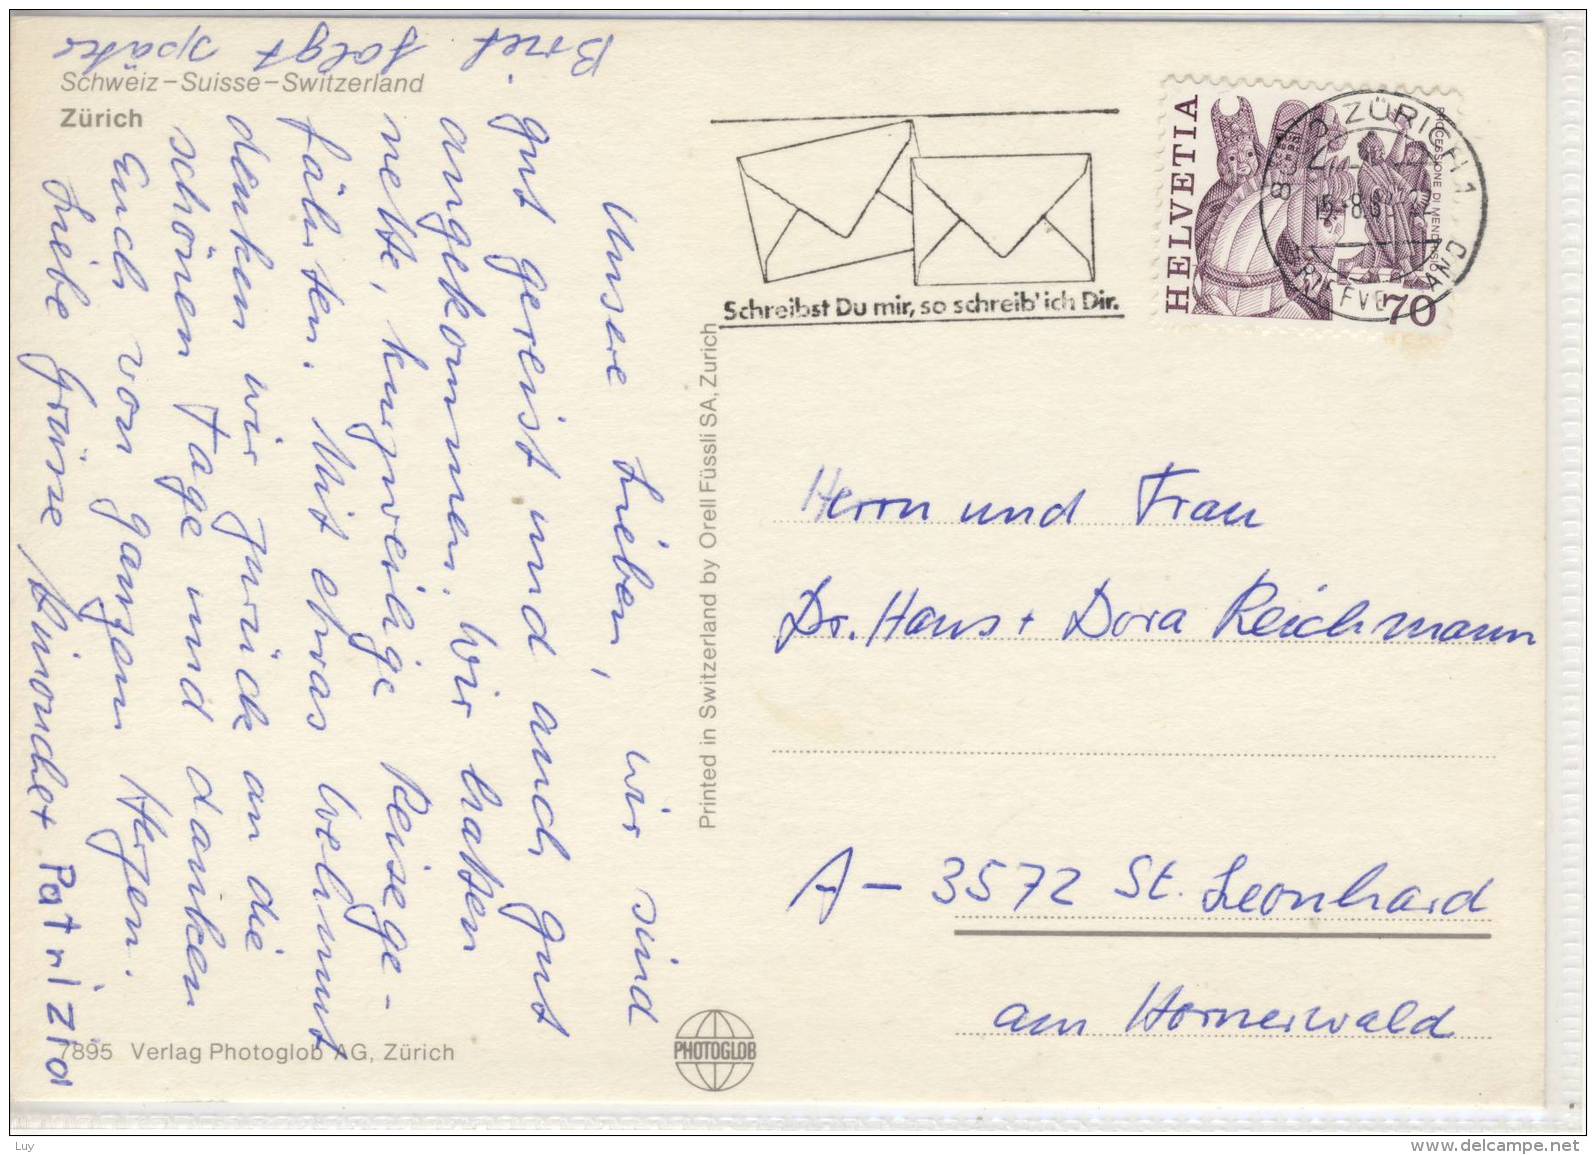 Schweiz – Suisse – Switzerland
Zürich
Brief folgt später
Unsere Lieben, wir sind
gut gereist und auch gut
angekommen. Wir hatten
nette, kurzweilige Reisege-
fährten. Mit etwas Wehmut
denken wir zurück an die
schönen Tage und danken
Euch von ganzem Herzen.
Liebe Grüsse
Patrizia
7895 Verlag Photoglob AG, Zürich
Printed in Switzerland by Orell Füssli SA, Zurich
PHOTOGLOB
Schreibst Du mir, so schreib' ich Dir.
HELVETIA
PROCESSIONE DI MENDRISIO
70
ZÜRICH
BRIEFVERSAND
Herrn und Frau
Dr. Hans + Dora Reichmann
A - 3572 St. Leonhard
am Hornerwald
Luy
www.delcampe.net